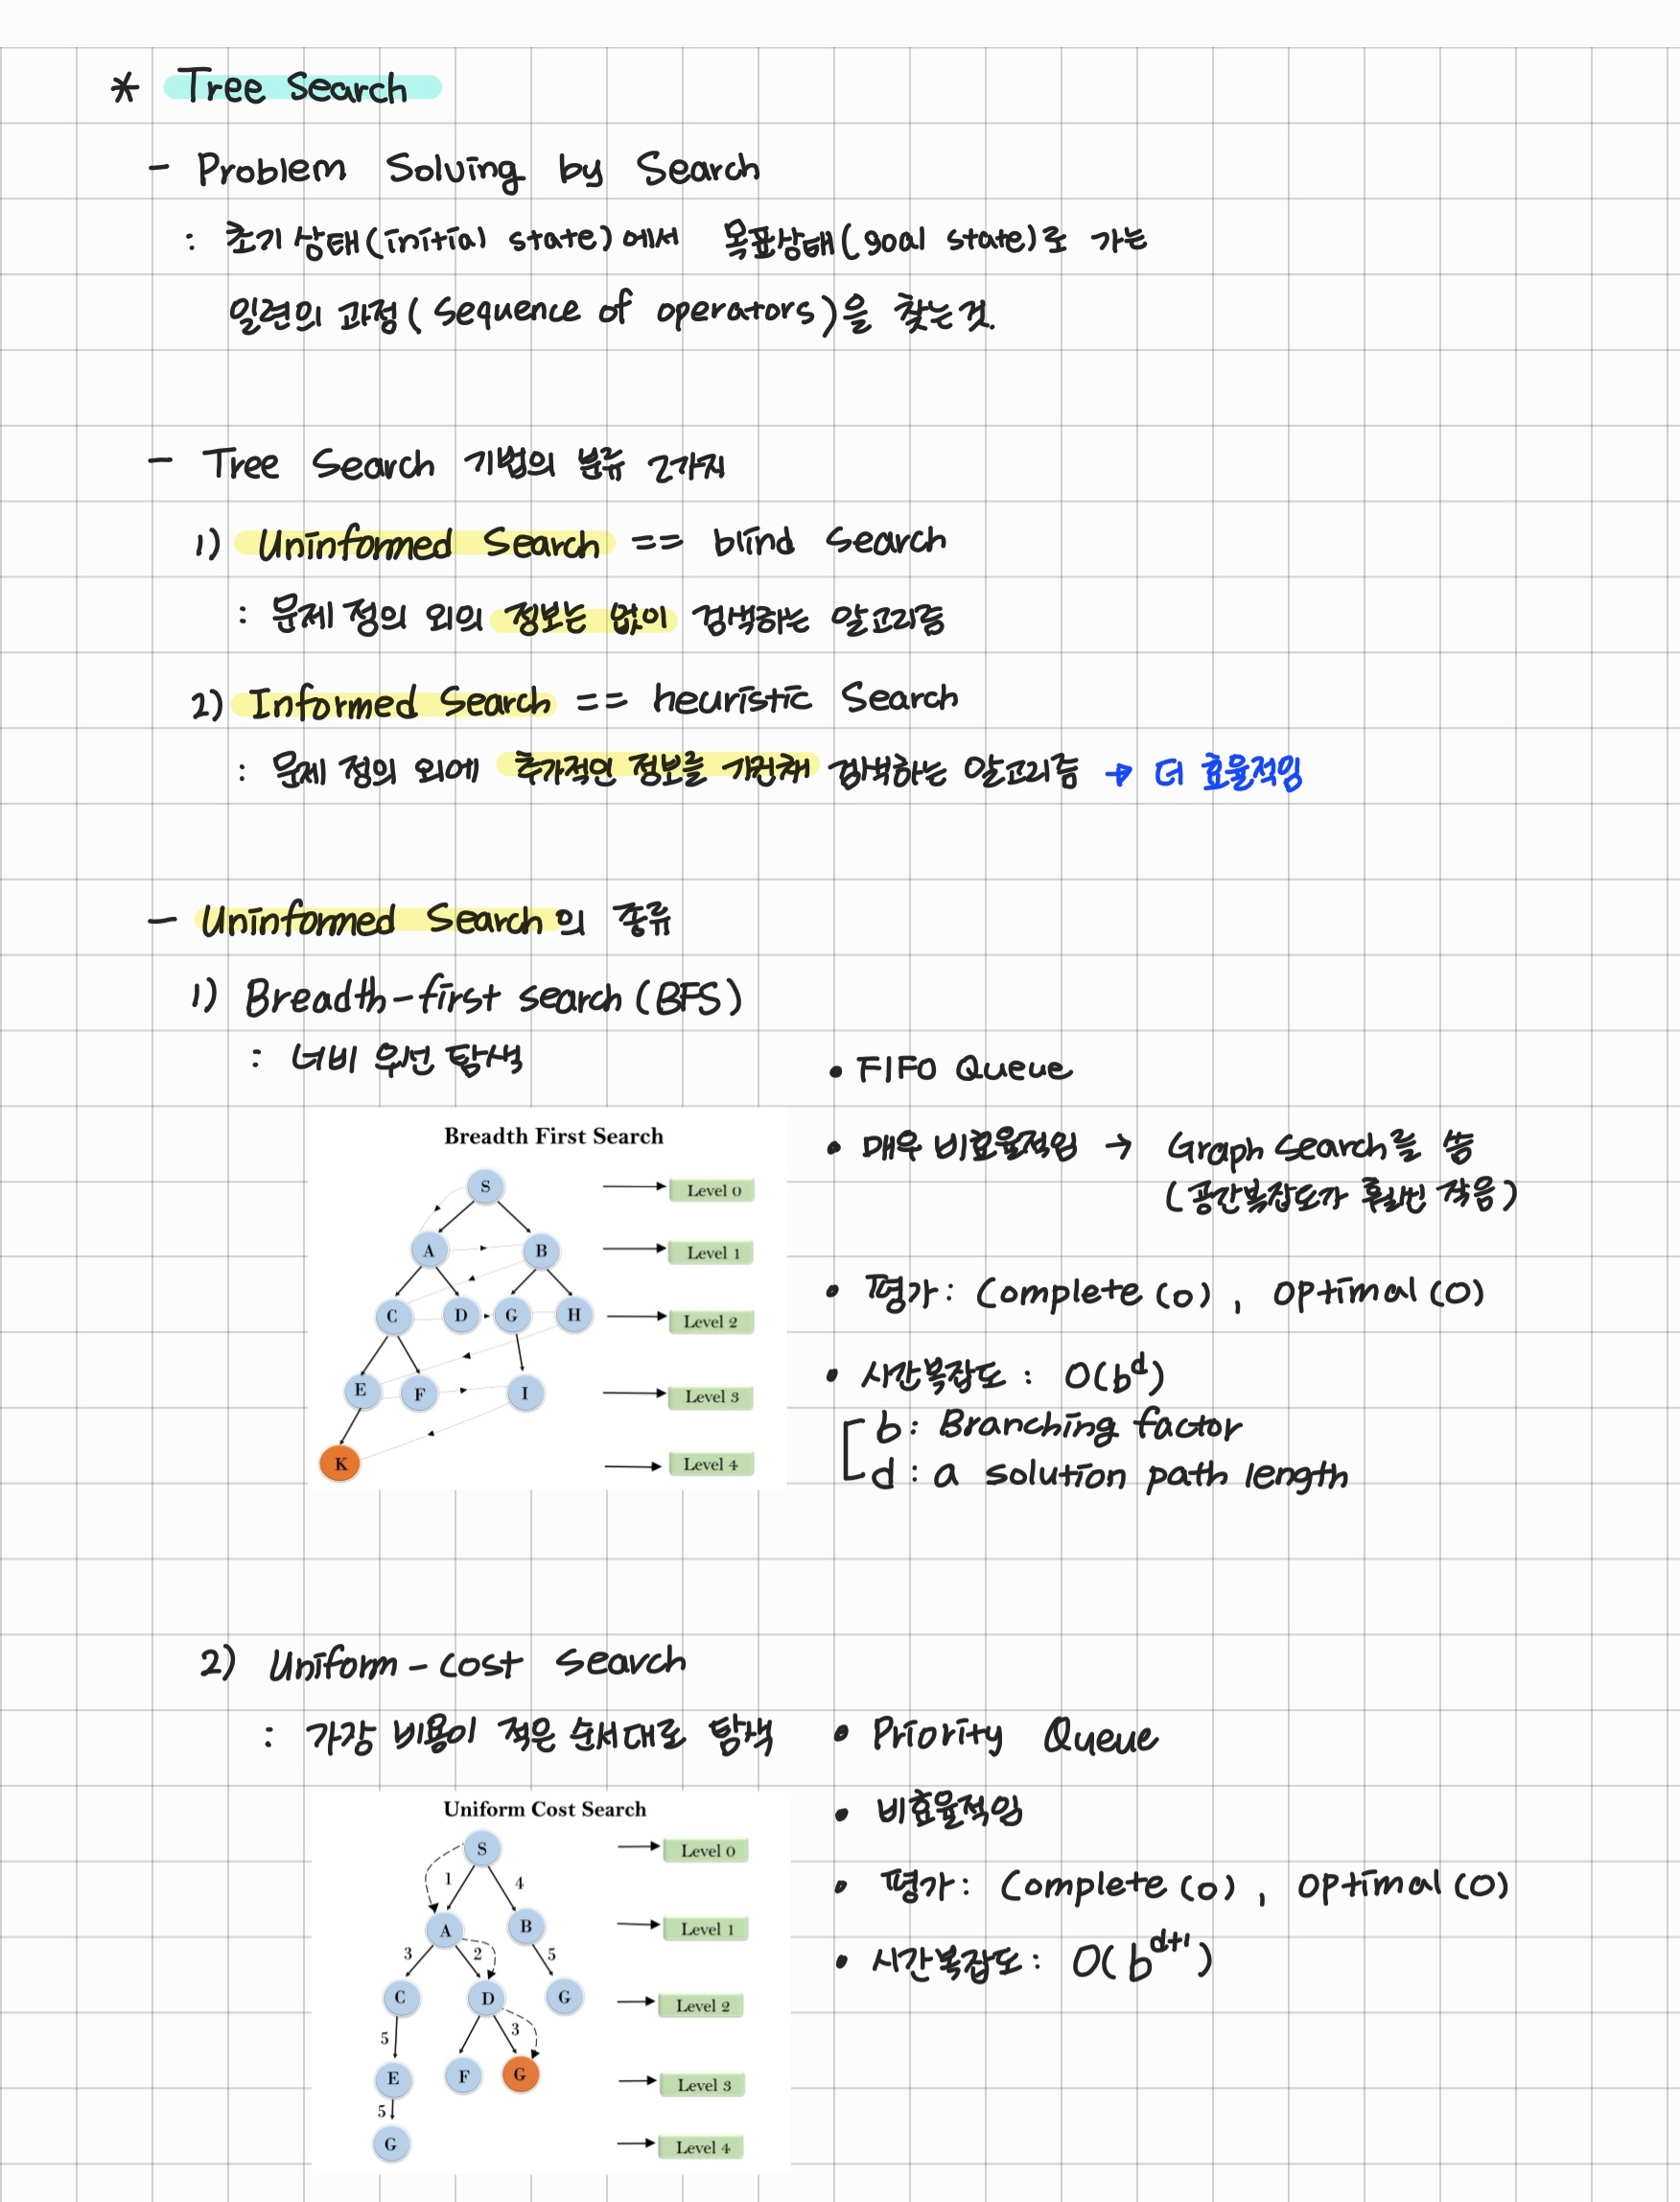 * Tree Search
- Problem Solving by Search
: 초기 상태(initial state)에서 목표상태(goal state)로 가는
일련의 과정( sequence of operators)을 찾는것.
- Tree Search 기법의 분류 2가지
1) Uninformed Search == blind Search
: 문제 정의 외의 정보는 없이 검색하는 알고리즘
2) Informed Search == heuristic Search
: 문제 정의 외에 추가적인 정보를 가진채 검색하는 알고리즘 → 더 효율적임
- Uninformed Search의 종류
1) Breadth-first search(BFS)
: 너비 우선 탐색
• FIFO Queue
• 매우 비효율적임 → Graph Search를 씀
(공간복잡도가 훨씬 작음)
• 평가: Complete (O) , Optimal (O)
• 시간복잡도 : O(b^d)
b: Branching factor
d: a solution path length
Breadth First Search
S Level 0
A B Level 1
C D G H Level 2
E F I Level 3
K Level 4
2) Uniform-cost Search
: 가장 비용이 적은 순서대로 탐색
• Priority Queue
• 비효율적임
• 평가: Complete (O) , Optimal (O)
• 시간복잡도: O( b^d+1 )
Uniform Cost Search
S Level 0
1 4
A B Level 1
3 2 5
C D G Level 2
5 3
E F G Level 3
5
G Level 4